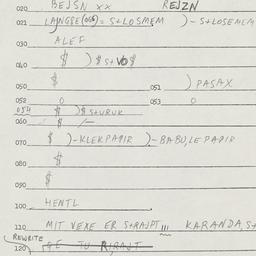 020 BEJSN XX REJZN
021 LAJNGSE(056) = S+LOSMEM )-S+LOSEMEM
030 ALEF
040 $ ) $ S+VO$
050 $ 051 ) PASAX
052 0 053 0
054 $ )$S+URUK
060 $ /-
070 $ )-KLEKPAPIR )-BABULE PAPIR
080 $
090 $
100 HENTL
110 MIT VEXE ER S+RAJPT ,,, KARANDA, S+
REWRITE
120 TU